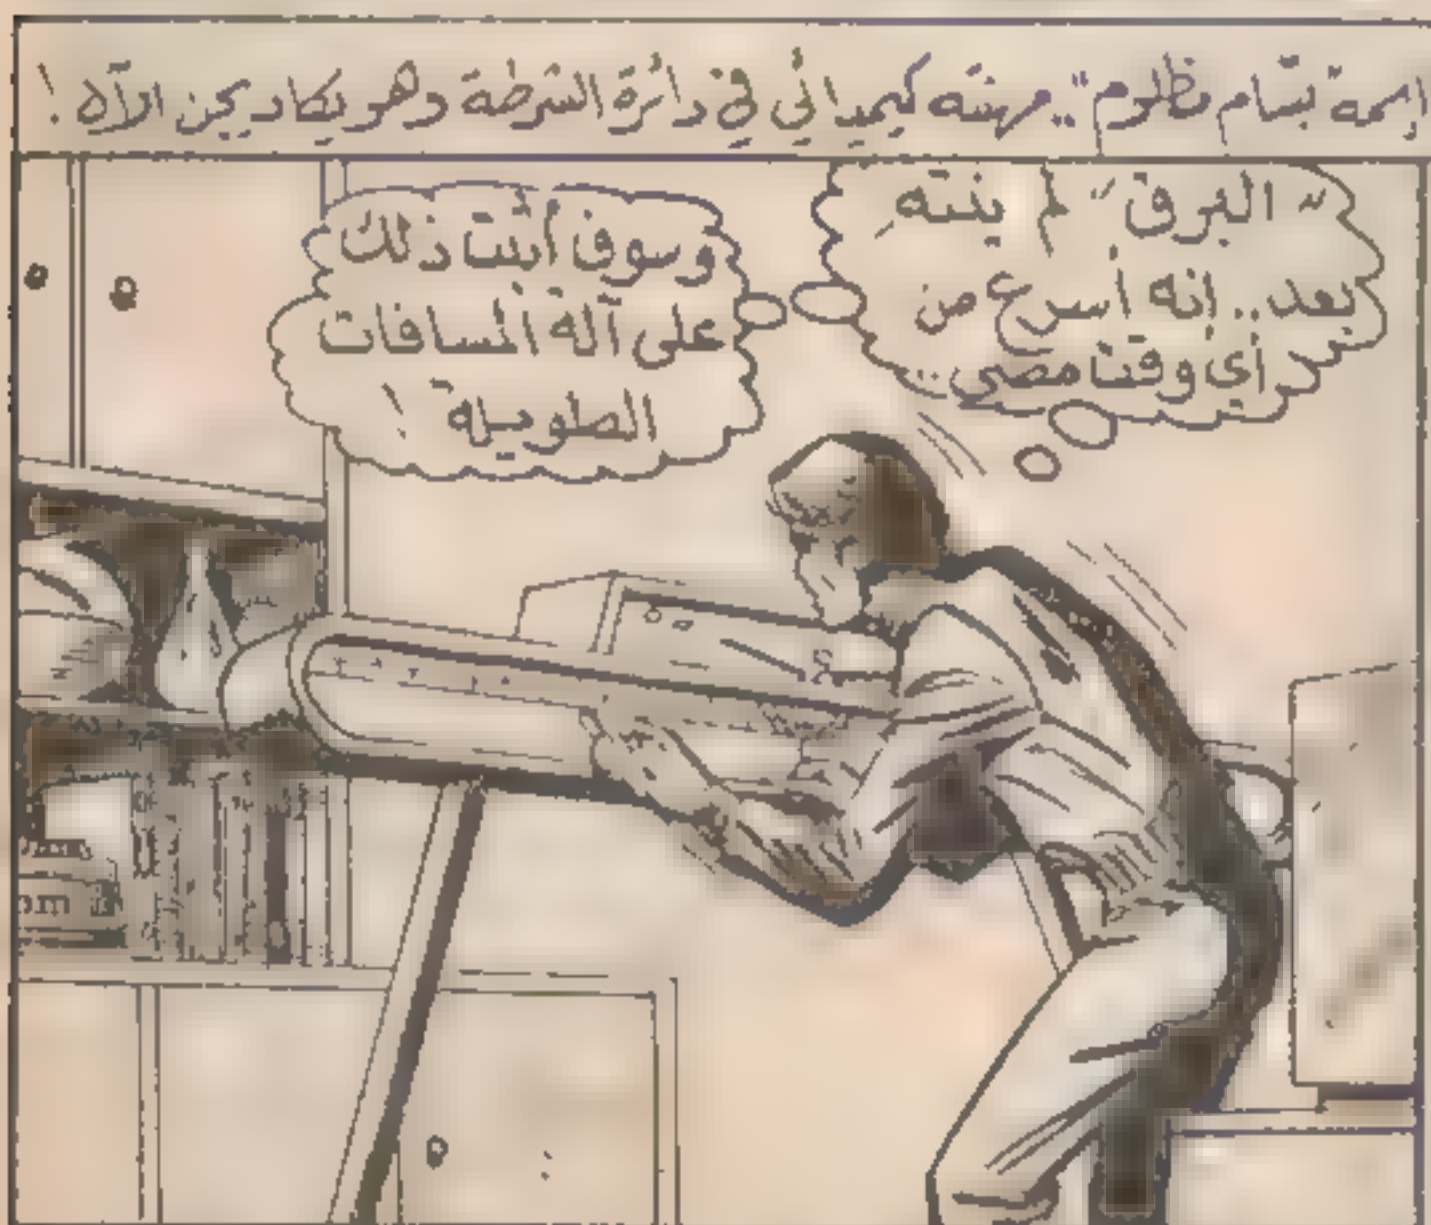 إسمه "بسام مظلوم".. مهنته كيميائي في دائرة الشرطة وهو يكاد يجن الآن !
"البرق" لم ينته
بعد.. إنه أسرع من
أي وقت مضى..
وسوف أثبت ذلك
على آلة المسافات
الطويلة !
om